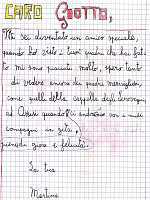 CARO GIOTTO,
Mi sei diventato un amico speciale,
quando ho visto i tuoi quadri che hai fat-
to mi sono piaciuti molto, spero tanto
di vedere ancora dei quadri meravigliosi
come quelli della cappella degli scrovegni,
ad Assisi quando ci andremo con i miei
compagni in gita,
gioia e felicità.
La tua
Martina